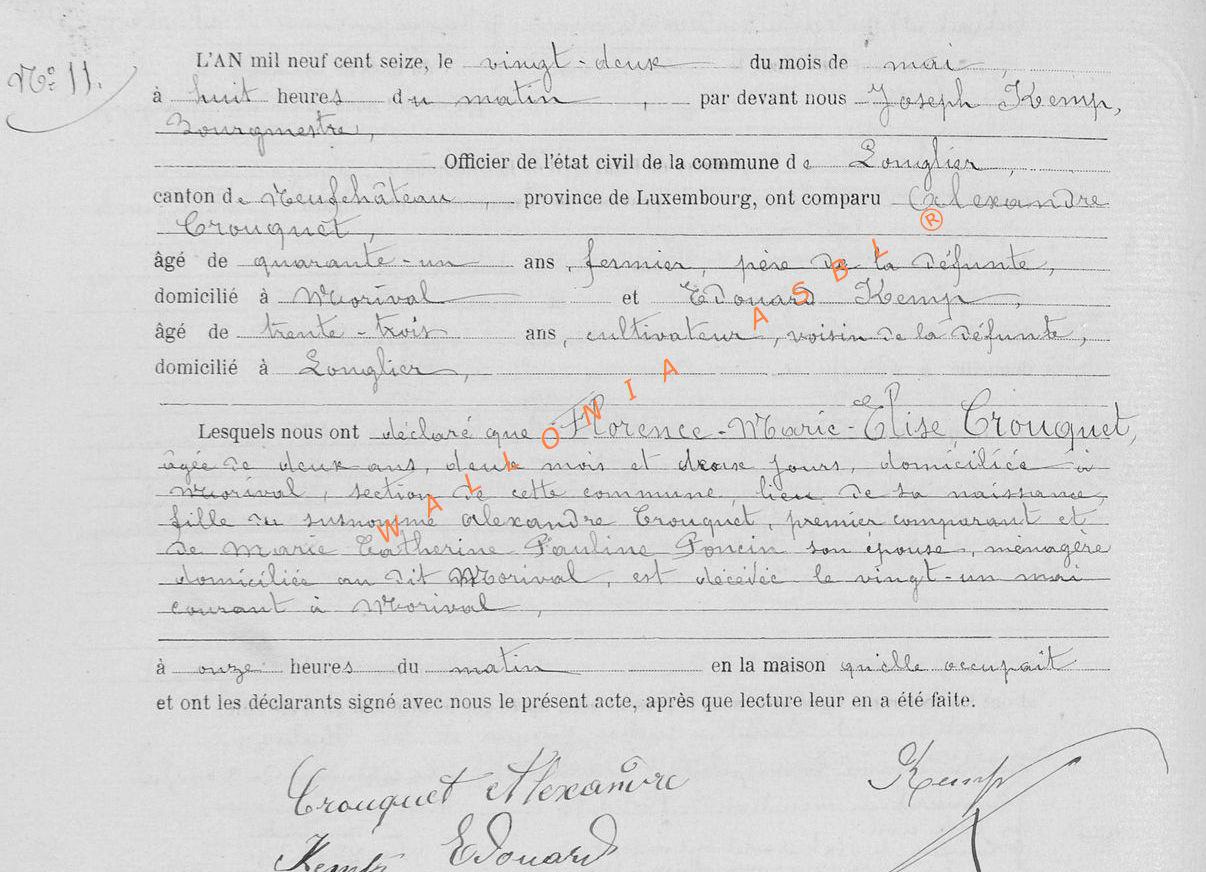 N° 11.
L'AN mil neuf cent seize, le vingt-deux du mois de mai,
à huit heures du matin, par devant nous Joseph Kemp,
Bourgmestre,
Officier de l'état civil de la commune de Longlier,
canton de Neufchâteau, province de Luxembourg, ont comparu Alexandre
Crouquet,
âgé de quarante-un ans, fermier, père de la défunte,
domicilié à Morival et Edouard Kemp,
âgé de trente-trois ans, cultivateur, voisin de la défunte,
domicilié à Longlier,
Lesquels nous ont déclaré que Florence-Marie-Elise Crouquet,
âgée de deux ans, deux mois et jours, domiciliée à
Morival, section de cette commune, lieu de sa naissance,
fille du susnommé Alexandre Crouquet, premier comparant et
de Marie Catherine Pauline Poncin son épouse, ménagère
domiciliée au dit Morival, est décédée le vingt-un mai
courant à Morival,
à onze heures du matin en la maison qu'elle occupait
et ont les déclarants signé avec nous le présent acte, après que lecture leur en a été faite.
Crouquet Alexandre Kemp
Kemp Edouard
WALLONIA ASBL ®